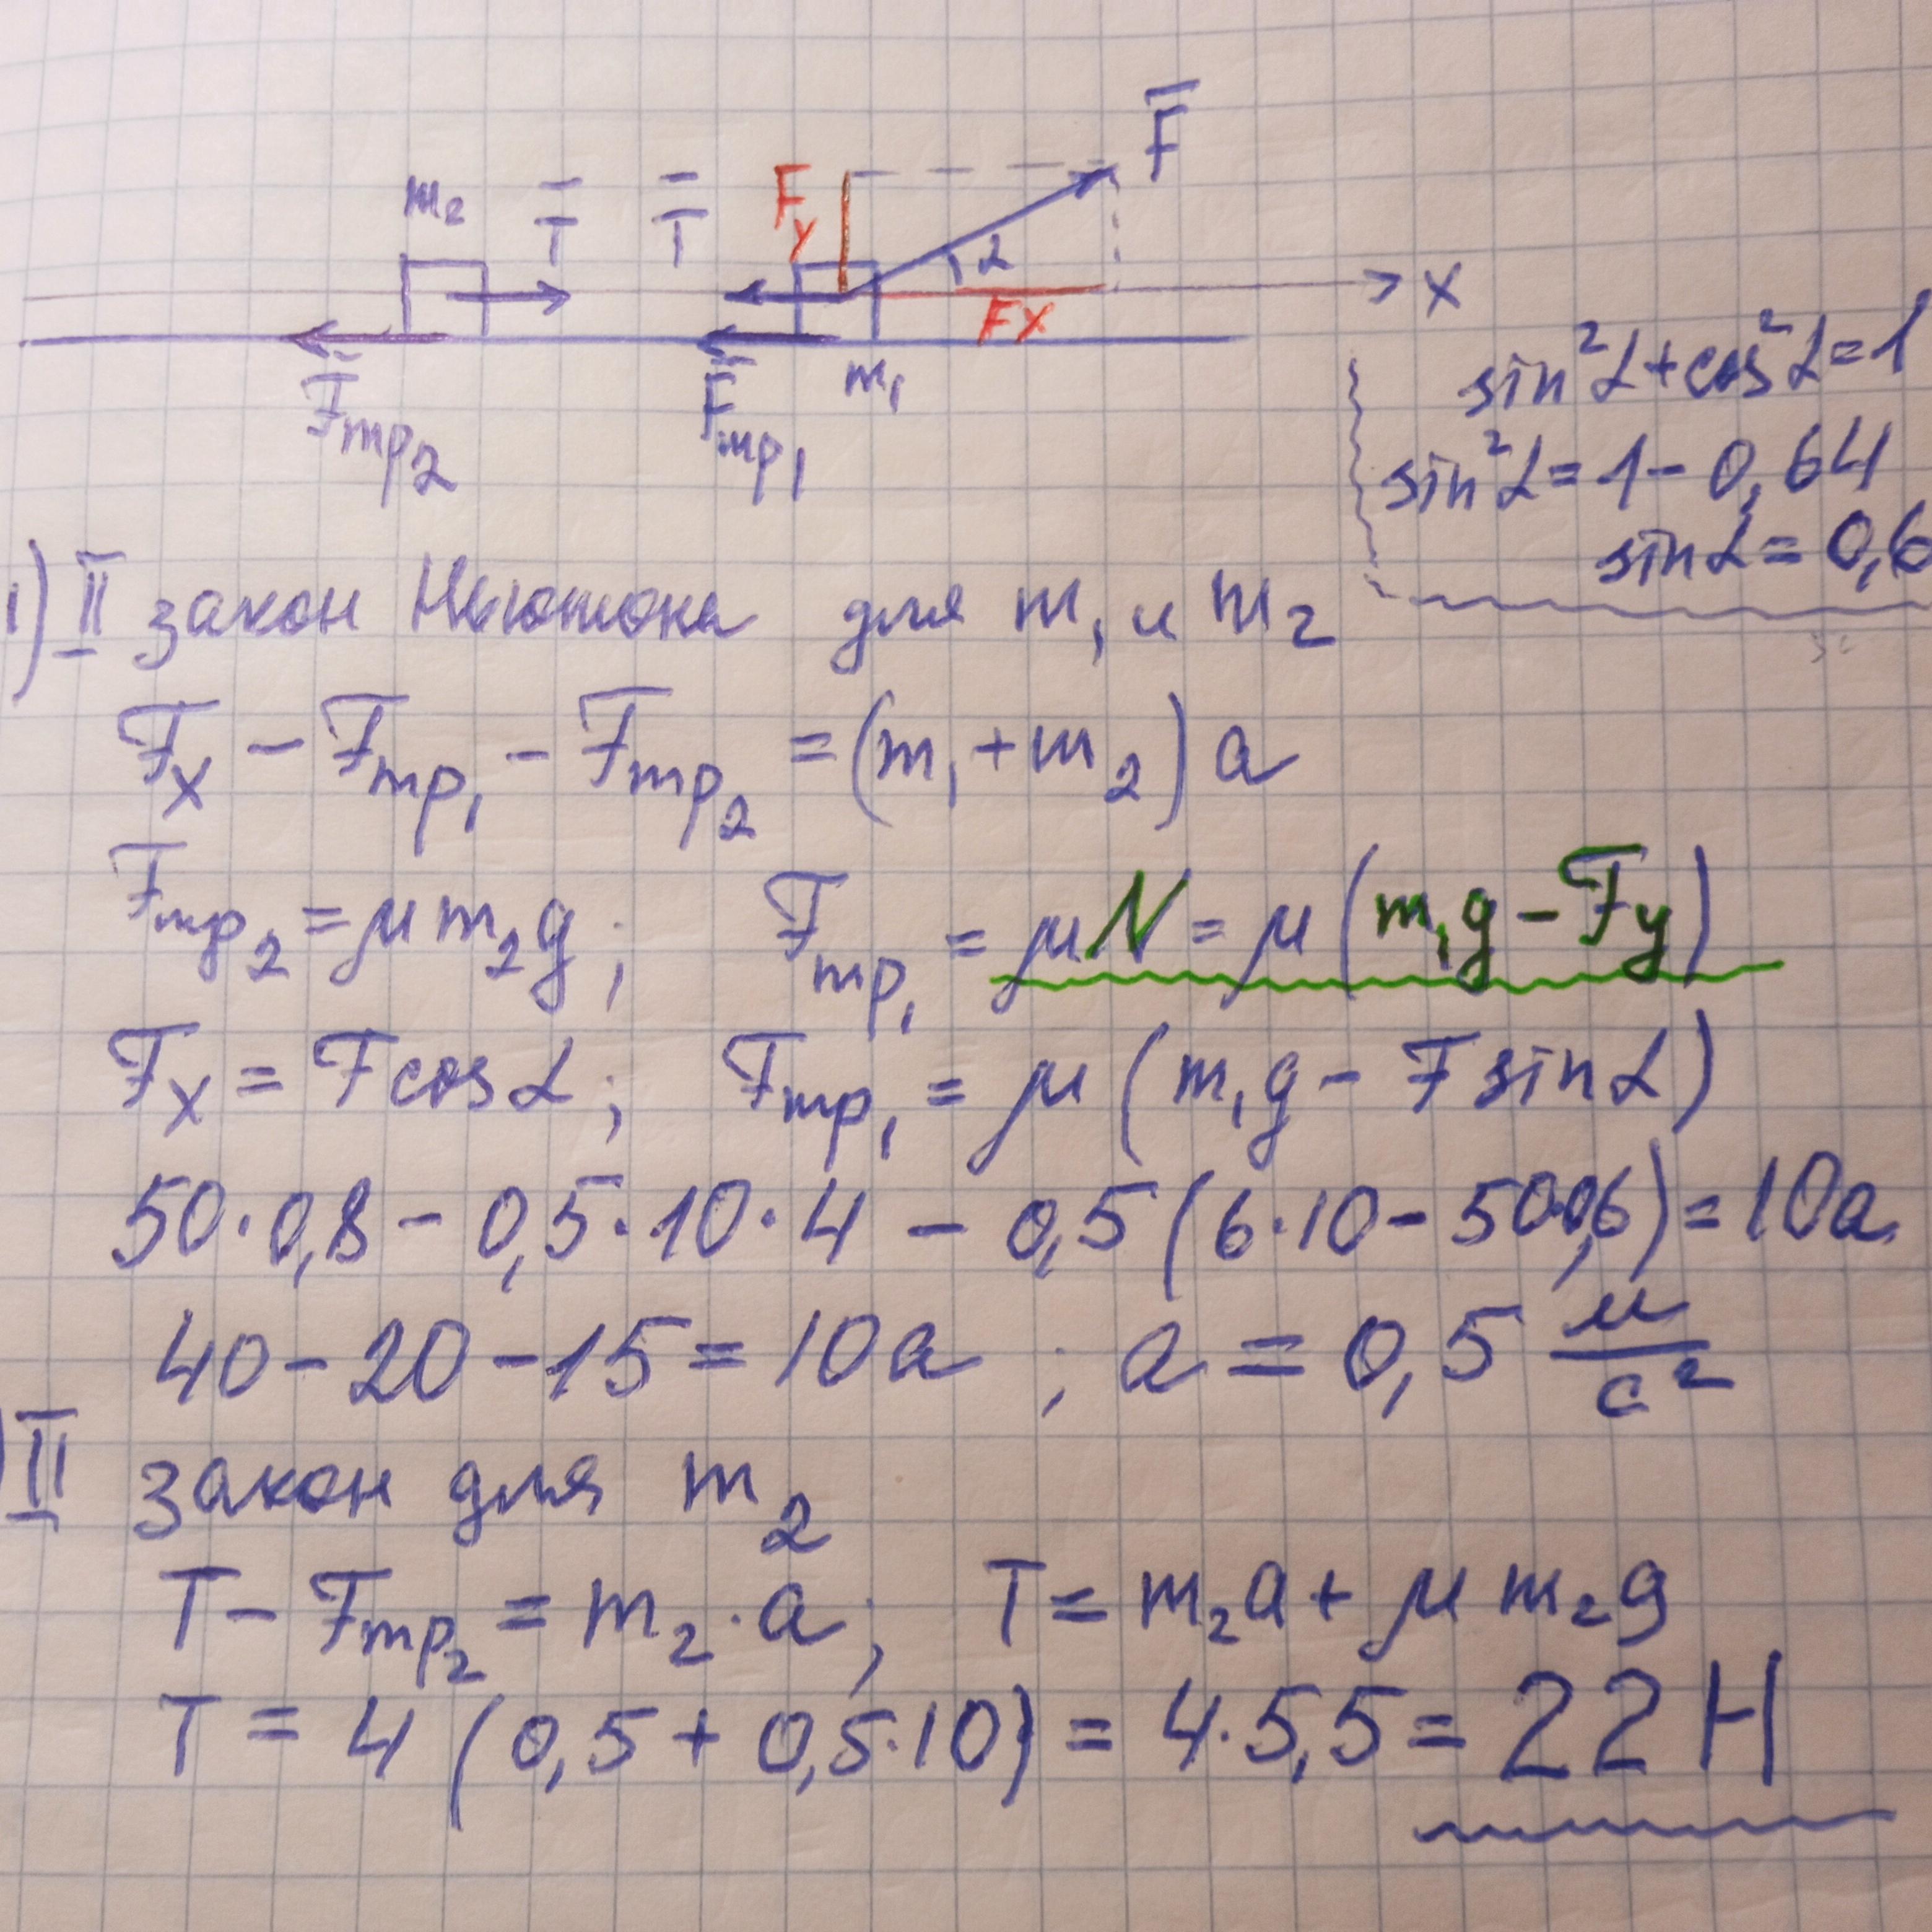 F̄
m₂ T̄ T̄ Fy α
Fx x
F̄тр₂ F̄тр₁ m₁
sin²α+cos²α=1
sin²α=1-0,64
sinα=0,6
1) II закон Ньютона для m₁ и m₂
Fx - Fтр₁ - Fтр₂ = (m₁+m₂) a
Fтр₂ = μm₂g; Fтр₁ = μN = μ(m₁g - Fy)
Fx = Fcosα; Fтр₁ = μ (m₁g - Fsinα)
50·0,8 - 0,5·10·4 - 0,5(6·10-50·0,6) = 10a
40-20-15 = 10a ; a = 0,5 м/с²
) II закон для m₂
T - Fтр₂ = m₂·a; T = m₂a + μm₂g
T = 4 (0,5 + 0,5·10) = 4·5,5 = 22 Н